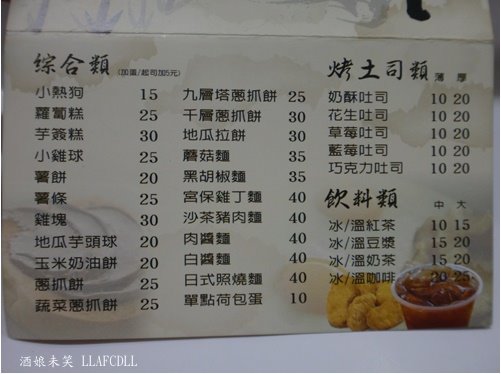 綜合類 (加蛋/起司加5元)
小熱狗 15
蘿蔔糕 25
芋簽糕 30
小雞球 25
薯餅 20
薯條 25
雞塊 30
地瓜芋頭球 20
玉米奶油餅 20
蔥抓餅 25
蔬菜蔥抓餅 25
九層塔蔥抓餅 25
千層蔥抓餅 30
地瓜拉餅 30
蘑菇麵 35
黑胡椒麵 35
宮保雞丁麵 40
沙茶豬肉麵 40
肉醬麵 40
白醬麵 40
日式照燒麵 40
單點荷包蛋 10
烤土司類 薄 厚
奶酥吐司 10 20
花生吐司 10 20
草莓吐司 10 20
藍莓吐司 10 20
巧克力吐司 10 20
飲料類 中 大
冰/溫紅茶 10 15
冰/溫豆漿 15 20
冰/溫奶茶 15 20
冰/溫咖啡 20 25
酒娘未笑 LLAFCDLL